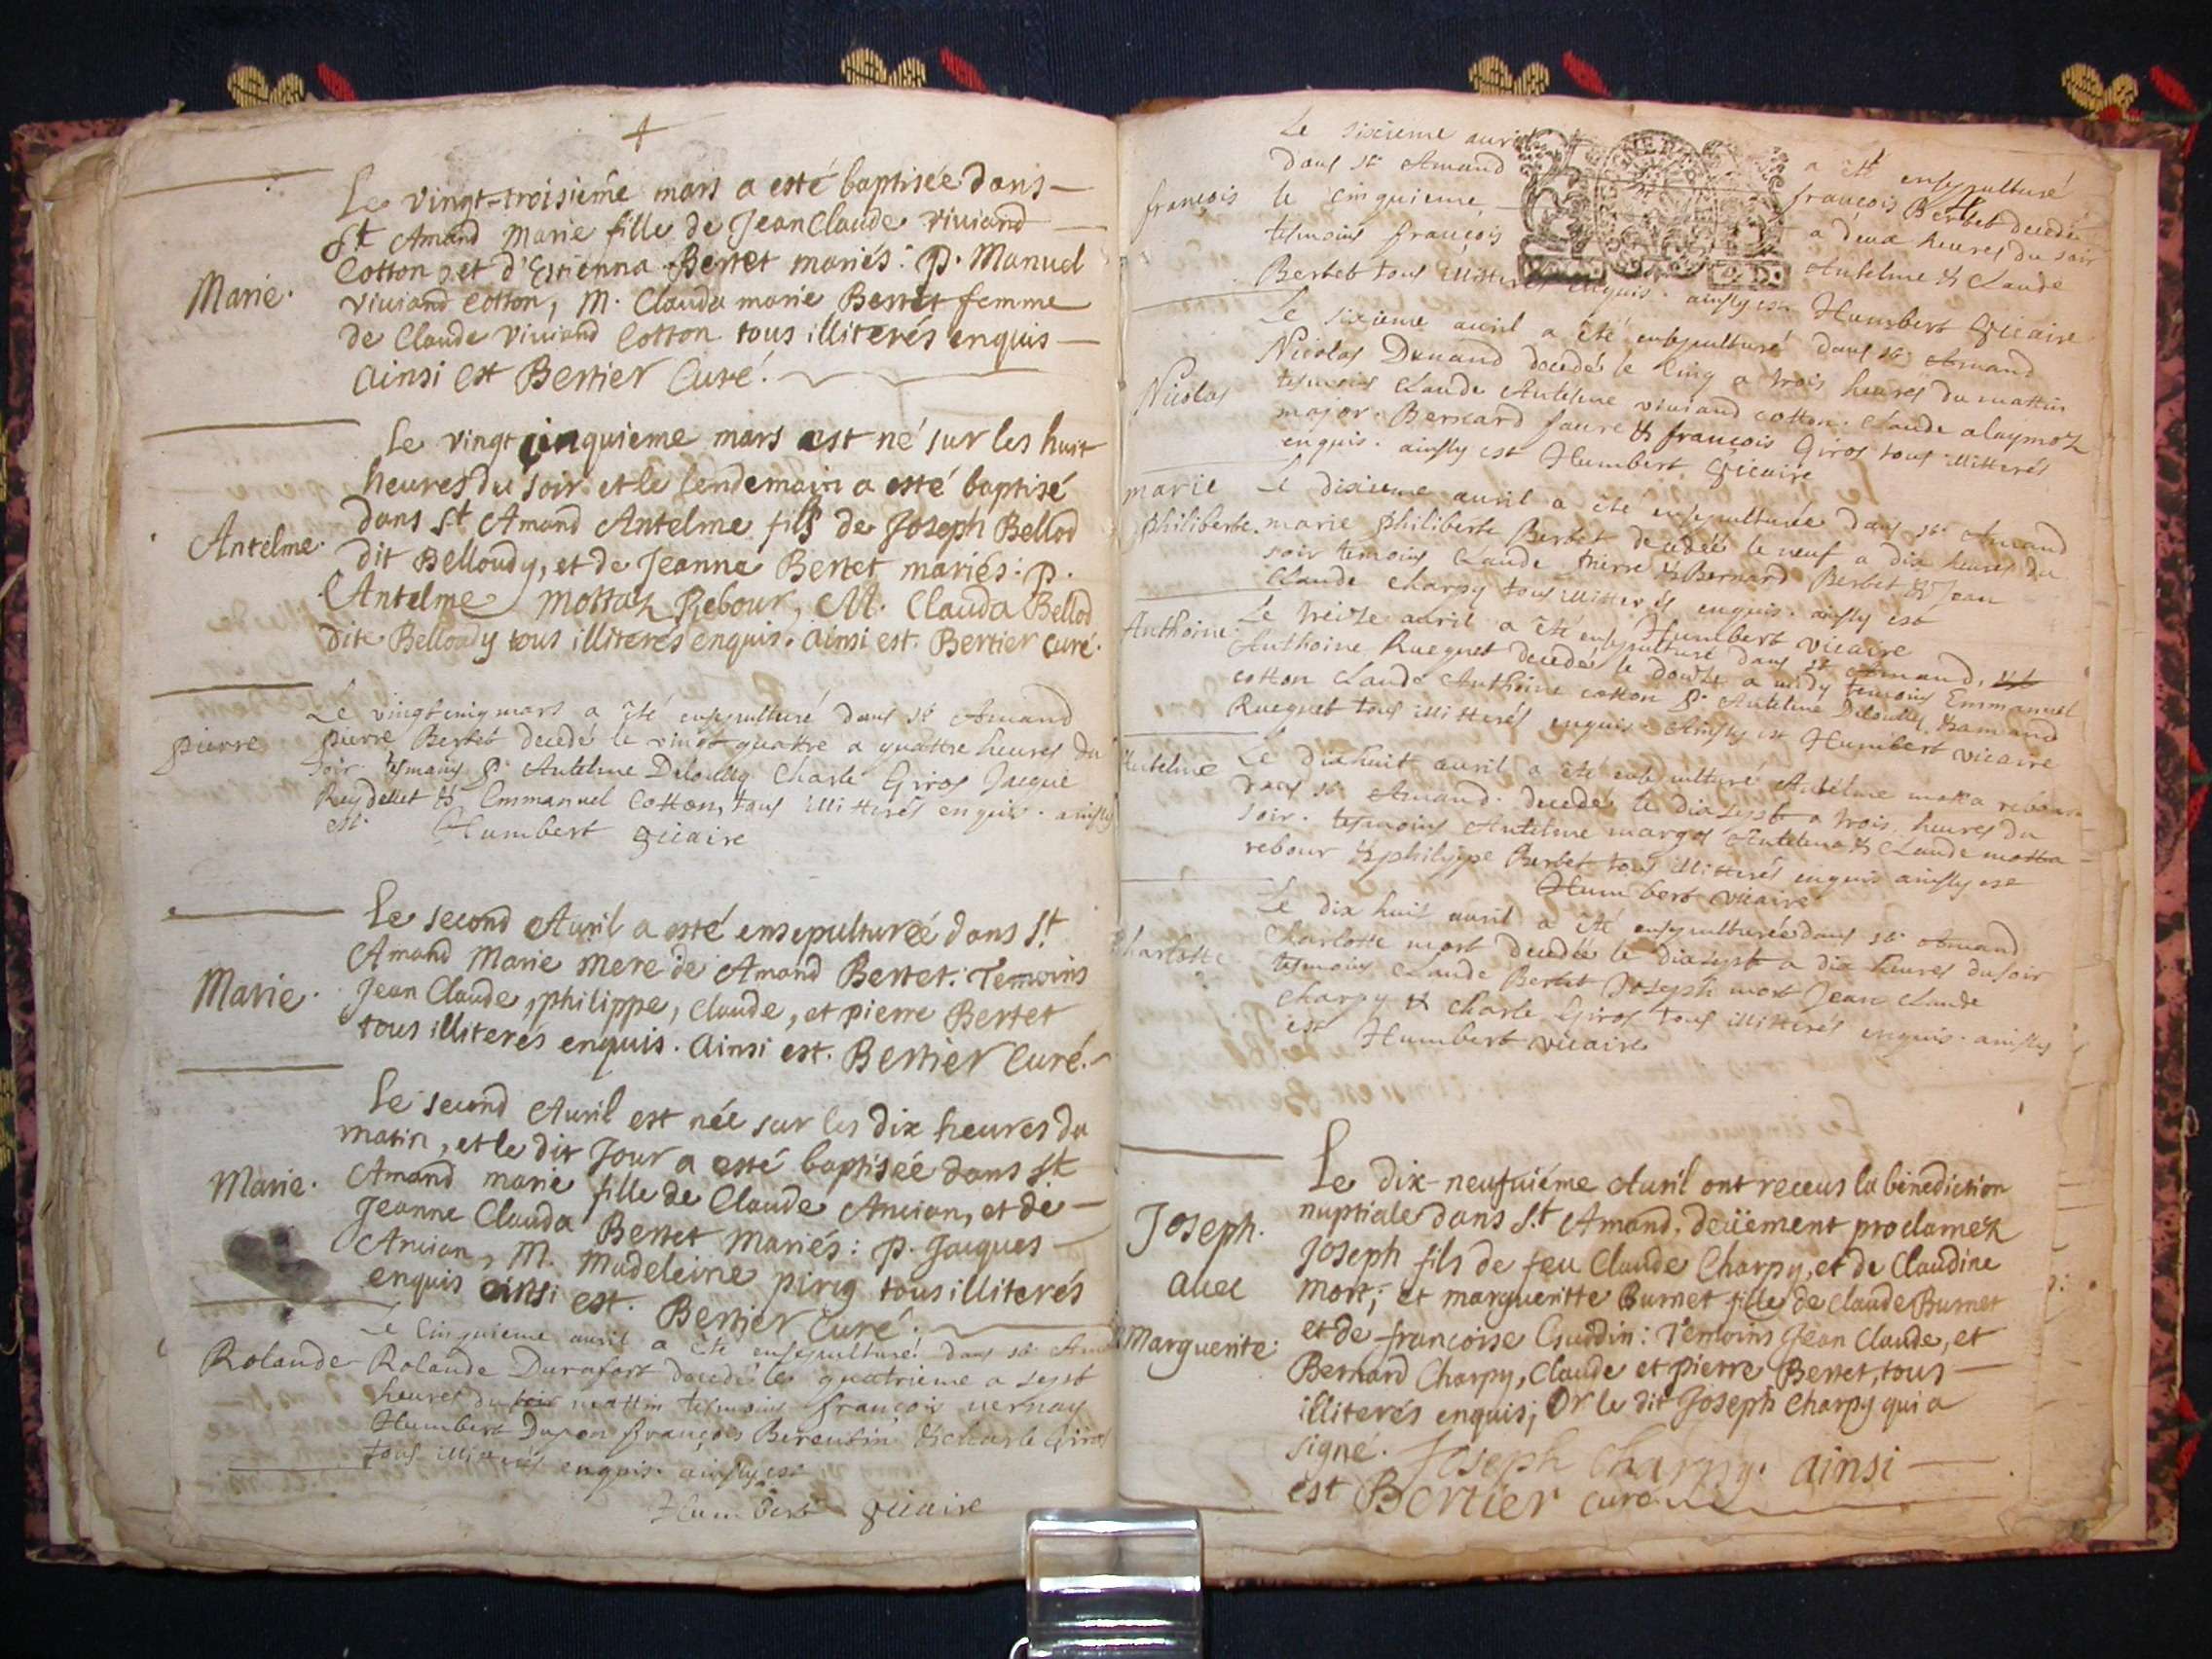 Le vingt-troisieme mars a esté baptisée dans
St Amand Marie fille de Jean Claude Viuiand
Cotton, et d'Estienna Bertet mariés: p. Manuel
Marie.
viuiand cotton, M. Clauda marie Bertet femme
de Claude Viuiand Cotton tous illiterés enquis
ainsi est Bertier Curé.
Le vingt cinquieme mars est né sur les huit
heures du soir et le lendemain a esté baptisé
dans St Amand Antelme fils de Joseph Bellod
Antelme.
dit Belloudy, et de Jeanne Bertet mariés: p.
Antelme Mottaz Rebour, M. Clauda Bellod
dite Belloudy tous illiterés enquis. ainsi est. Bertier curé.
Le vingt cinq mars a été ensepulturé dans st Amand
pierre
pierre Bertet decedé le vingt quattre a quattre heures du
soir. tesmoins Antelme Charle Giros Jacque
Reydellet & Emmanuel Cotton, tous illitterés enquis. ainsÿ
est. Humbert vicaire
Le second Auril a esté ensepulturée dans St.
Amand Marie mere de Amand Bertet: Temoins
Marie.
Jean Claude, philippe, claude, et pierre Bertet
tous illiterés enquis. ainsi est. Bertier Curé.
Le second Auril est née sur les dix heures du
matin, et le dit Jour a esté baptisée dans St
Marie.
Amand marie fille de Claude Ancian, et de
Jeanne Clauda Bertet Mariés: p. Jacques
Ancian, M. Madeleine tous illiterés
enquis ainsi est. Bertier Curé.
Le Cinquieme auril a été ensepulturé dans st
Rolande
Rolande Durafort decedé le quatrieme a sept
heures du soir mattin tesmoins françois uernay
Humbert françois & charle Giros
tous illiterés enquis. ainsÿ est
Humbert vicaire
Le sixieme auril a été ensepulturé
dans st Amand françois Bertet decedé
françois
le cinquieme a deux heures du soir
tesmoins françois Antelme & Claude
Bertet tous illitterés enquis. ainsÿ est Humbert vicaire
Le sixieme auril a été ensepulturé dans st Amand
Nicolas
Nicolas Dunand decedé le cinq a trois heures du mattin
tesmoins Claude Antelme viuiand cotton. Claude alaymoz
major. Bernard faure & françois Giros tous illitterés
enquis. ainsÿ est Humbert vicaire
marie
philiberte.
Le dixieme auril a été ensepulturée dans st Amand
marie philiberte Bertet decedée le neuf a dix heures du
soir temoins Claude pierre & Bernard Bertet & Jean
Claude charpy tous illitterés enquis. ainsÿ est
Humbert vicaire
Anthoine.
Le treize auril a été ensepulturé dans st Amand
Anthoine Rueguet decedé le douze a midy temoins Emmanuel
cotton Claude Anthoine cotton Antelme & amand
Rueguet tous illitterés enquis. Ainsÿ est Humbert vicaire
Antelme
Le dixhuit auril a été ensepulturé Antelme motta rebour
dans st Amand. decedé le dixsept a trois heures du
soir. tesmoins Antelme margot Antelme & Claude motta
rebour & philippe Bertet tous illitterés enquis ainsÿ est
Humbert vicaire
Charlotte
Le dix huit auril a été ensepulturée dans st Amand
Charlotte mort decedée le dixsept a dix heures du soir
tesmoins Claude Bertet Joseph mort Jean Claude
charpy & charle Giros tous illitterés enquis. ainsÿ
est Humbert vicaire
Le dix-neufuiéme Auril ont receus la benediction
nuptiale dans St. Amand. deüement proclamez
Joseph.
Joseph fils de feu Claude Charpy, et de Claudine
auec
mort; et margueritte Burnet fille de Claude Burnet
Marguerite:
et de francoise Guddin: Temoins Jean Claude, et
Bernard Charpy, Claude et pierre Bertet, tous
illiterés enquis; Or le dit Joseph Charpy qui a
signé. Joseph Charpy. ainsi
est Bertier curé